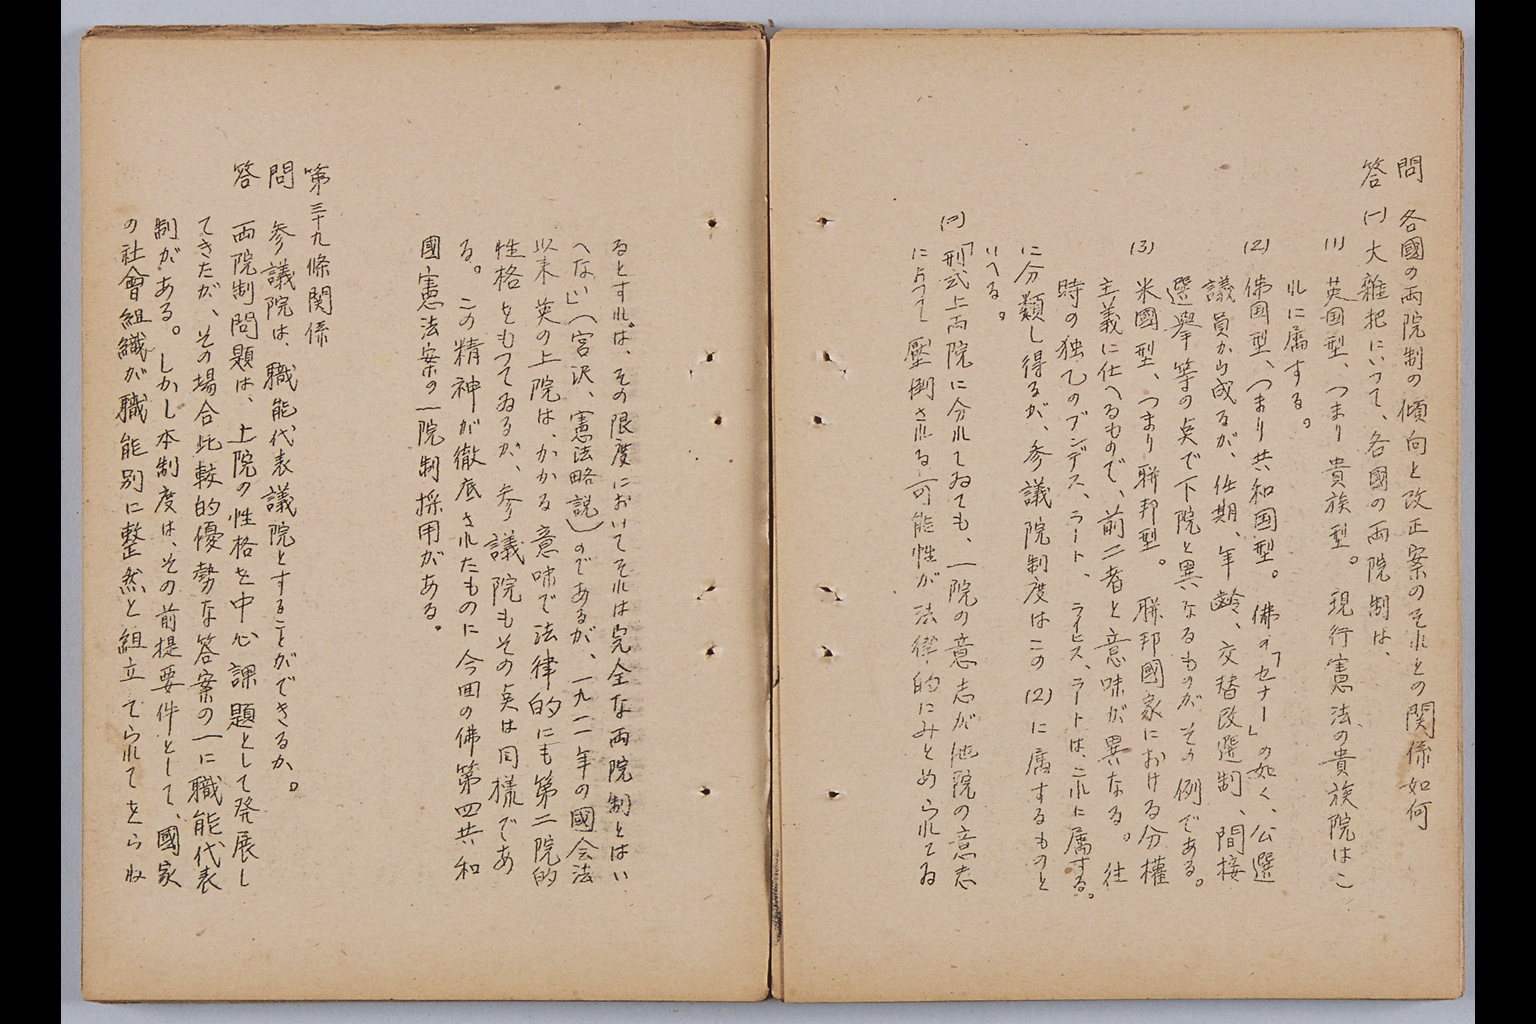 問　各國の両院制の傾向と改正案のそれとの関係如何
答　(一)大雑把にいつて、各國の両院制は、
(1)　英国型、つまり貴族型。現行憲法の貴族院はこ
れに属する。
(2)　佛国型、つまり共和国型。佛の「セナー」の如く、公選
議員から成るが、任期、年齢、交替改選制、間接
選挙等の点で下院と異なるものがその例である。
(3)　米國型、つまり聯邦型。聯邦國家における分權
主義に仕へるもので、前二者と意味が異なる。往
時の独乙のブンデス、ラート、ライヒス、ラートは、これに属する。
に分類し得るが、参議院制度はこの(2)に属するものと
いへる。
(二)「形式上両院に分れてゐても、一院の意志が他院の意志
によつて壓倒される可能性が法律的にみとめられてゐ
るとすれば、その限度においてそれは完全な両院制とはい
へない」(宮沢、憲法略説)のであるが、一九一一年の國会法
以来英の上院は、かかる意味で法律的にも第二院的
性格をもつてゐるが、参議院もその点は同様であ
る。この精神が徹底されたものに今回の佛第四共和
國憲法案の一院制採用がある。
第三十九條関係
問　参議院は、職能代表議院とすることができるか。
答　両院制問題は、上院の性格を中心課題として発展し
てきたが、その場合比較的優勢な答案の一に職能代表
制がある。しかし本制度は、その前提要件として、國家
の社會組織が職能別に整然と組立てられてをらね